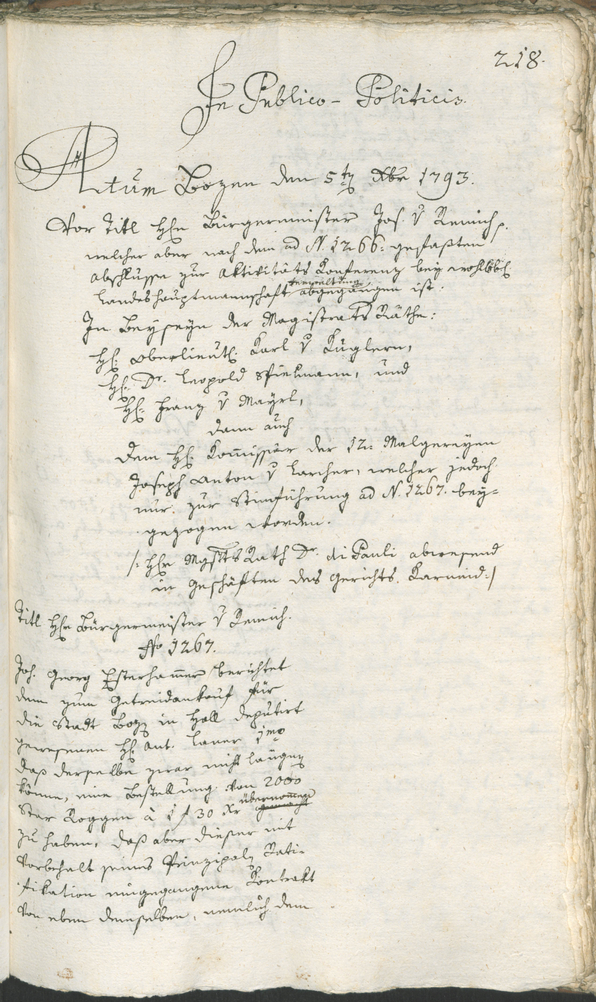 218.
In Publico-Politicis.
Actum Bozen den 5ten Xbr 1793.
Vor Titl Hhn Bürgermeister Jos. v Remich,
welcher aber nach dem ad N. 1266. gefaßten
abschlusse zur Aktivitäts Konferenz bey wohllöbl
verwaltung
Landeshauptmannschaft abgegangen ist.
In Beyseyn der Magistrats Räthe:
Hh. Oberlieut. Karl v Küglern,
Hh. Dr. Leopold Spielmann, und
Hh. Franz v Mayrl,
dann auch
dem Hh. Kommissär der 12. Malgereyen
Joseph Anton v Larcher, welcher jedoch
nur zur Stimführung ad N. 1267. bey-
gezogen worden.
/: Hhr Mgstts Rath Dr. di Pauli abwesend
in Geschäften des Gerichts Karneid :/
Titl Hhr Bürgermeister v Remich.
No 1267.
Joh. Georg Esterhammer berichtet
dem zum Getreidankauf für
die Stadt Boz in Hall deputirt
gewesenen Hh. Ant. Laner imo
daß derselbe zwar nicht laugnen
könne, eine Bestellung von 2000
übernommen
Star Roggen à 1 f 30 Xr gemacht
zu haben, daß aber dieser mit
Vorbehalt seines Prinzipals Rati-
fikation eingegangene Kontrakt
von eben demselben, nemlich dem